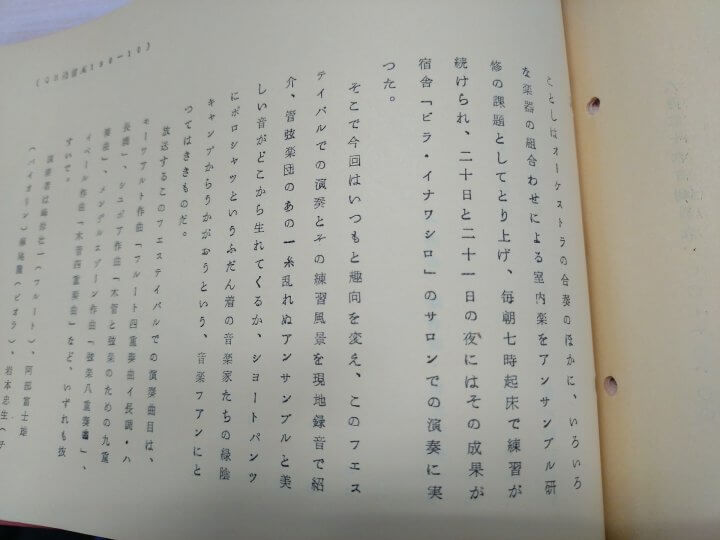 ことしはオーケストラの合奏のほかに、いろいろ
な楽器の組合わせによる室内楽をアンサンブル研
修の課題としてとり上げ、毎朝七時起床で練習が
続けられ、二十日と二十一日の夜にはその成果が
宿舎「ビラ・イナワシロ」のサロンでの演奏に実
つた。
そこで今回はいつもと趣向を変え、このフエス
テイバルでの演奏とその練習風景を現地録音で紹
介、管弦楽団のあの一糸乱れぬアンサンブルと美
しい音がどこから生れてくるか、シヨートパンツ
にポロシヤツというふだん着の音楽家たちの緑陰
キヤンプからうかがおうという、音楽フアンにと
つてはききものだ。
放送するこのフエステイバルでの演奏曲目は、
モーツアルト作曲「フルート四重奏曲イ長調・ハ
長調」、シユポア作曲「木管と弦楽のための九重
奏曲」、メンデルスゾーン作曲「弦楽八重奏曲」、
イベール作曲「木管四重奏曲」など、いずれも抜
すいで。
演奏者は 一（フルート）、阿部富士雄
（バイオリン） （ビオラ）、岩本忠生（チ